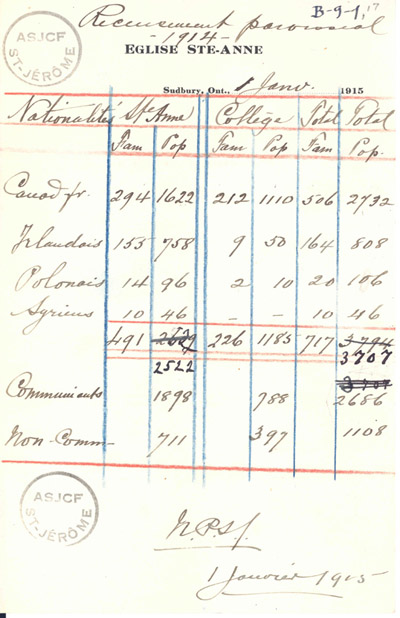 B-9-1, 17
ASJCF
ST-JÉRÔME
Recensement paroissial
-1914-
EGLISE STE-ANNE
Sudbury, Ont. 1 Janv. 1915
Nationalités Ste Anne College Total Total
Fam Pop Fam Pop Fam Pop.
Canad fr. 294 1622 212 1110 506 2732
Irlandais 153 758 9 50 164 808
Polonais 14 96 2 10 20 106
Syriens 10 46 - - 10 46
491 226 1185 717 3794
2522 3707
3707
Communiants 1898 788 2686
Non-Comm- 711 397 1108
ASJCF
ST-JÉRÔME
1 Janvier 1915